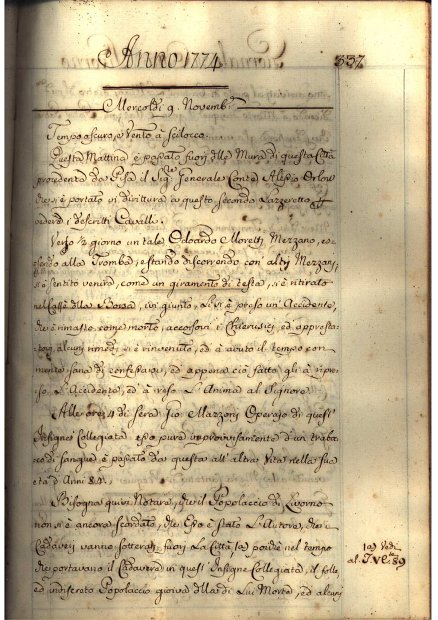 Anno 1774.
337
Mercoldì 9. Novemb:e
Tempo oscuro, e Vento à Scilocco.
Questa Mattina è passato fuori delle Mura di questa Città
provenendo da Pisa il Sig:re Generale Conte Alessio Orlow
che si è portato in dirittura a questo secondo Lazzeretto
vedere i descritti Cavalli.
Verso 1/2 giorno un tale Odoardo Moretti Mezzano, es
sendo alla Tromba, e stando discorrendo con altri Mezzani,
si è sentito venire come un giramento di testa, si è ritirato
nel Caffè della Borsa, ivi giunto, Li si è preso un' Accidente,
che è rimasto come morto, accorsovi i Chierusici, ed appresta-
toli alcuni rimedi si è rinvenuto, ed à avuto il tempo con
mente sana di confessarsi, ed appena ciò fatto gli à ripre-
so L'Accidente, ed à reso L'Anima al Signore.
Alle ore 4 di sera Gio Mazzoni Operajo di quest'
Insigne Collegiata esso pure improvisamente d'un traboc
co di sangue è passato da questa all'altra Vita nella sua
età d'Anni 84.
Bisogna quivi Notare, che il Popolaccio di Livorno
non si è ancora scordato, che Esso è stato L'Autore, che i
Cadaveri vanno sotterati fuori La Città (a) poichè nel tempo
che portavano il Cadavere in quest' Insigne Collegiata, il folle,
ed indiscreto Popolaccio gioiva della di Lui Morte, ed alcuni
(a) Vedi
al T. VI. 89